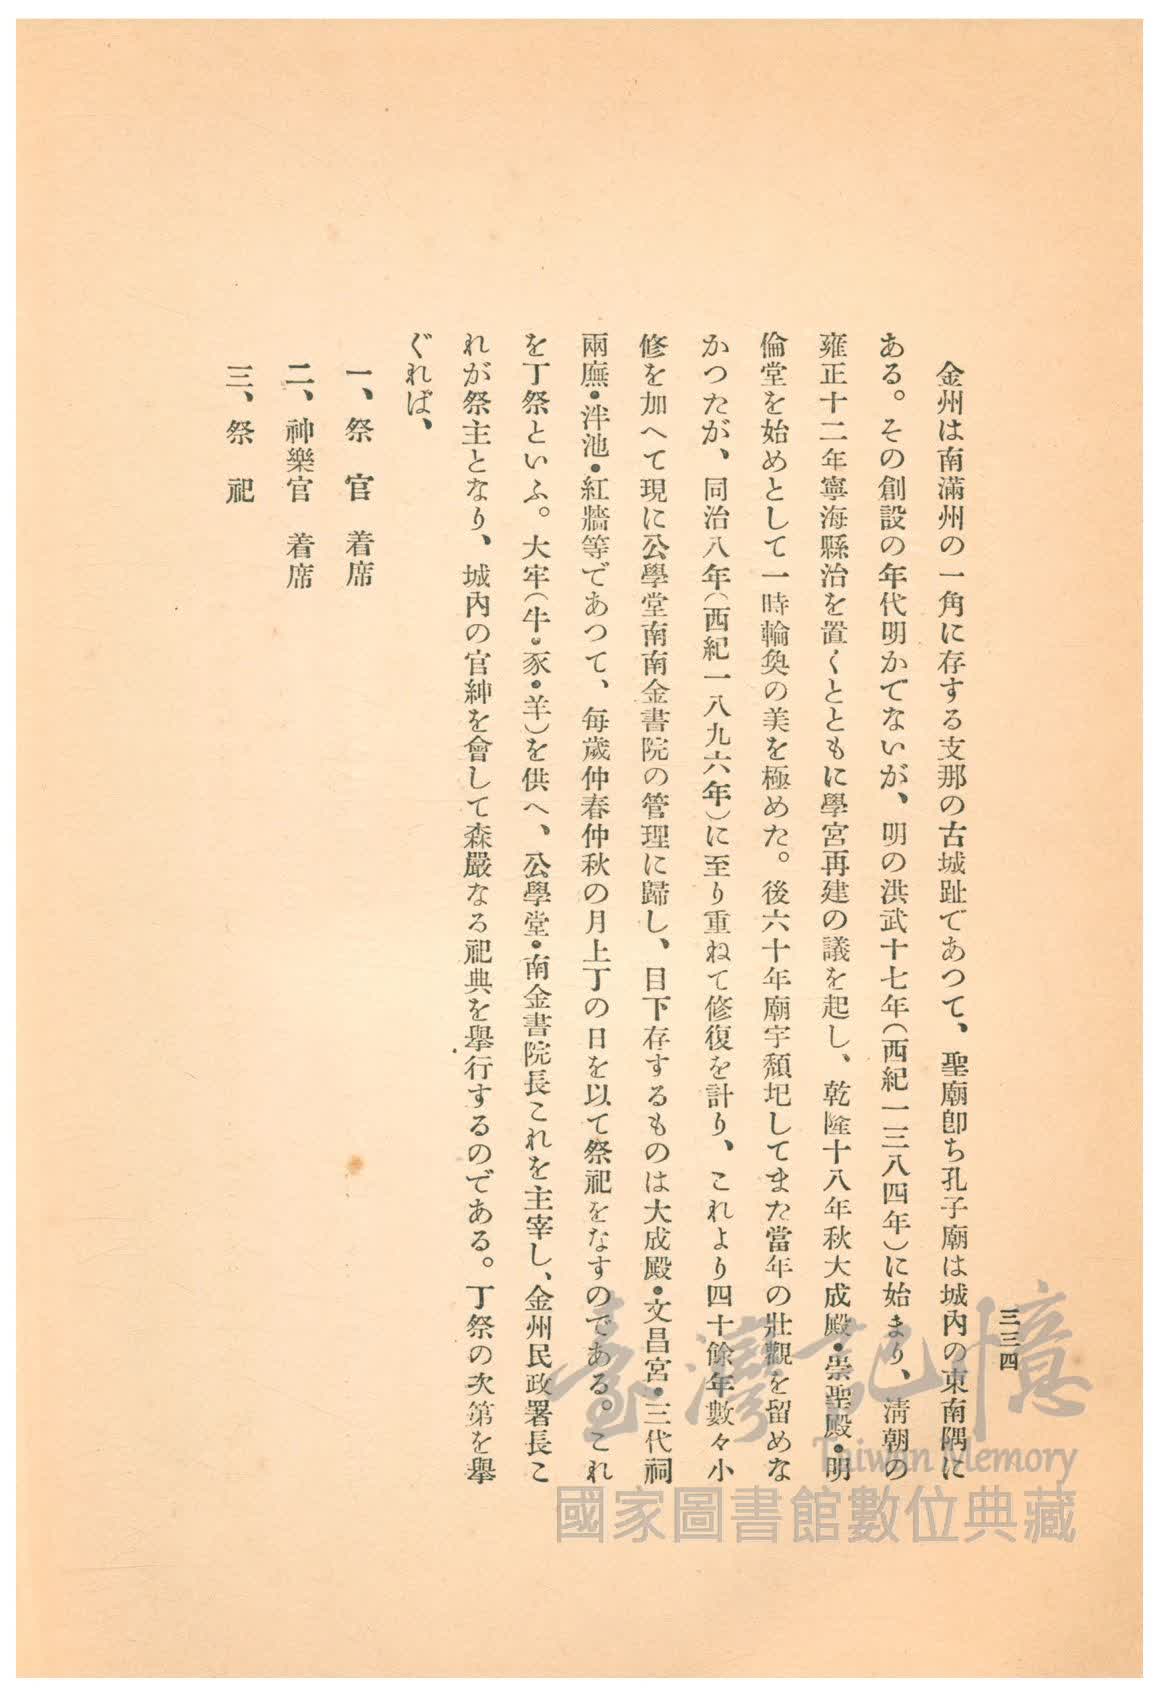 三三四
金州は南滿州の一角に存する支那の古城趾であつて、聖廟卽ち孔子廟は城內の東南隅に
ある。その創設の年代明かでないが、明の洪武十七年(西紀一三八四年)に始まり、淸朝の
雍正十二年寧海縣治を置くとともに學宮再建の議を起し、乾隆十八年秋大成殿・崇聖殿・明
倫堂を始めとして一時輪奐の美を極めた。後六十年廟宇頽圮してまた當年の壯觀を留めな
かつたが、同治八年(西紀一八九六年)に至り重ねて修復を計り、これより四十餘年數々小
修を加へて現に公學堂南南金書院の管理に歸し、目下存するものは大成殿・文昌宮・三代祠
兩廡・泮池・紅牆等であつて、每歲仲春仲秋の月上丁の日を以て祭祀をなすのである。これ
を丁祭といふ。大牢(牛・豕・羊)を供へ、公學堂・南金書院長これを主宰し、金州民政署長こ
れが祭主となり、城內の官紳を會して森嚴なる祀典を擧行するのである。丁祭の次第を擧
ぐれば、
一、祭 官 着席
二、神樂官 着席
三、祭 祀
臺灣記憶
Taiwan Memory
國家圖書館數位典藏